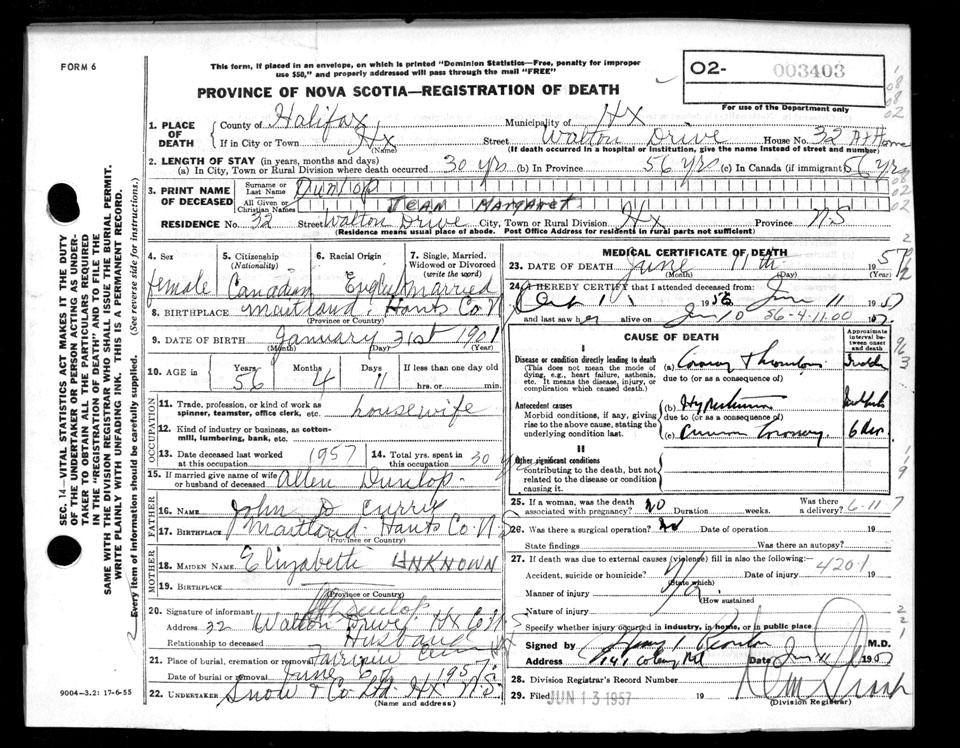 FORM 6
This form, if placed in an envelope, on which is printed "Dominion Statistics—Free, penalty for improper
use $50," and properly addressed will pass through the mail "FREE"
O2- 003403
For use of the Department only
PROVINCE OF NOVA SCOTIA—REGISTRATION OF DEATH
1. PLACE OF DEATH
County of Halifax Municipality of Hx
If in City or Town Hx (Name) Street Walton Drive House No. 32 At Home
(If death occurred in a hospital or institution, give the name instead of street and number)
2. LENGTH OF STAY (in years, months and days)
(a) In City, Town or Rural Division where death occurred 30 yrs (b) In Province 56 yrs (c) In Canada (if immigrant) 56 yrs
3. PRINT NAME OF DECEASED
Surname or Last Name Dunlop
All Given or Christian Names JEAN MARGARET
RESIDENCE No. 32 Street Walton Drive City, Town or Rural Division Hx Province N.S
(Residence means usual place of abode. Post Office Address for residents in rural parts not sufficient)
4. Sex female
5. Citizenship (Nationality) Canadian
6. Racial Origin English
7. Single, Married, Widowed or Divorced (write the word) Married
8. BIRTHPLACE Maitland, Hants Co N.S
(Province or Country)
9. DATE OF BIRTH January 31st 1901
(Month) (Day) (Year)
10. AGE Years 56 Months 4 Days 11 If less than one day old hrs. or min.
OCCUPATION
11. Trade, profession, or kind of work as spinner, teamster, office clerk, etc. housewife
12. Kind of industry or business, as cotton-mill, lumbering, bank, etc.
13. Date deceased last worked at this occupation 1957
14. Total yrs. spent in this occupation 30 yrs
15. If married give name of wife or husband of deceased Allen Dunlop
FATHER
16. NAME John D Currie
17. BIRTHPLACE Maitland Hants Co N.S
(Province or Country)
MOTHER
18. MAIDEN NAME Elizabeth UNKNOWN
19. BIRTHPLACE
(Province or Country)
20. Signature of informant Dunlop
Address 32 Walton Drive Hx Co N.S
Relationship to deceased Husband
21. Place of burial, cremation or removal Fairview Hx
Date of burial or removal June 1957
22. UNDERTAKER Snow & Co Ltd. Hx N.S.
(Name and address)
MEDICAL CERTIFICATE OF DEATH
23. DATE OF DEATH June 11th 1957
(Month) (Day)
24. I HEREBY CERTIFY that I attended deceased from:
Oct 1 1956 Jun 11 1957
and last saw her alive on Jun 10 56-4-11.00
CAUSE OF DEATH
Approximate interval between onset and death
I
Disease or condition directly leading to death
(This does not mean the mode of dying, e.g., heart failure, asthenia, etc. It means the disease, injury, or complication which caused death.)
(a) Coronary Thrombosis Sudden
due to (or as a consequence of)
Antecedent causes
Morbid conditions, if any, giving rise to the above cause, stating the underlying condition last.
(b) Hypertension
due to (or as a consequence of)
(c) Coronary
II
Other significant conditions
contributing to the death, but not related to the disease or condition causing it.
25. If a woman, was the death associated with pregnancy? No Duration weeks. Was there a delivery? 6-11-7
26. Was there a surgical operation? No Date of operation 19
State findings Was there an autopsy?
27. If death was due to external causes (violence) fill in also the following:
Accident, suicide or homicide? (State which) Date of injury 420.1 19
Manner of injury
(How sustained)
Nature of injury
Specify whether injury occurred in industry, in home, or in public place
Signed by M.D.
Address Date Jun 11 1957
28. Division Registrar's Record Number
29. Filed JUN 13 1957 19
(Division Registrar)
SEC. 14—VITAL STATISTICS ACT MAKES IT THE DUTY
OF THE UNDERTAKER OR PERSON ACTING AS UNDERTAKER
TO OBTAIN ALL THE PARTICULARS REQUIRED
IN THE "REGISTRATION OF DEATH" AND TO FILE THE
SAME WITH THE DIVISION REGISTRAR WHO SHALL ISSUE THE BURIAL PERMIT.
WRITE PLAINLY WITH UNFADING INK. THIS IS A PERMANENT RECORD.
Every item of information should be carefully supplied. (See reverse side for instructions.)
9004-3.2: 17-6-55